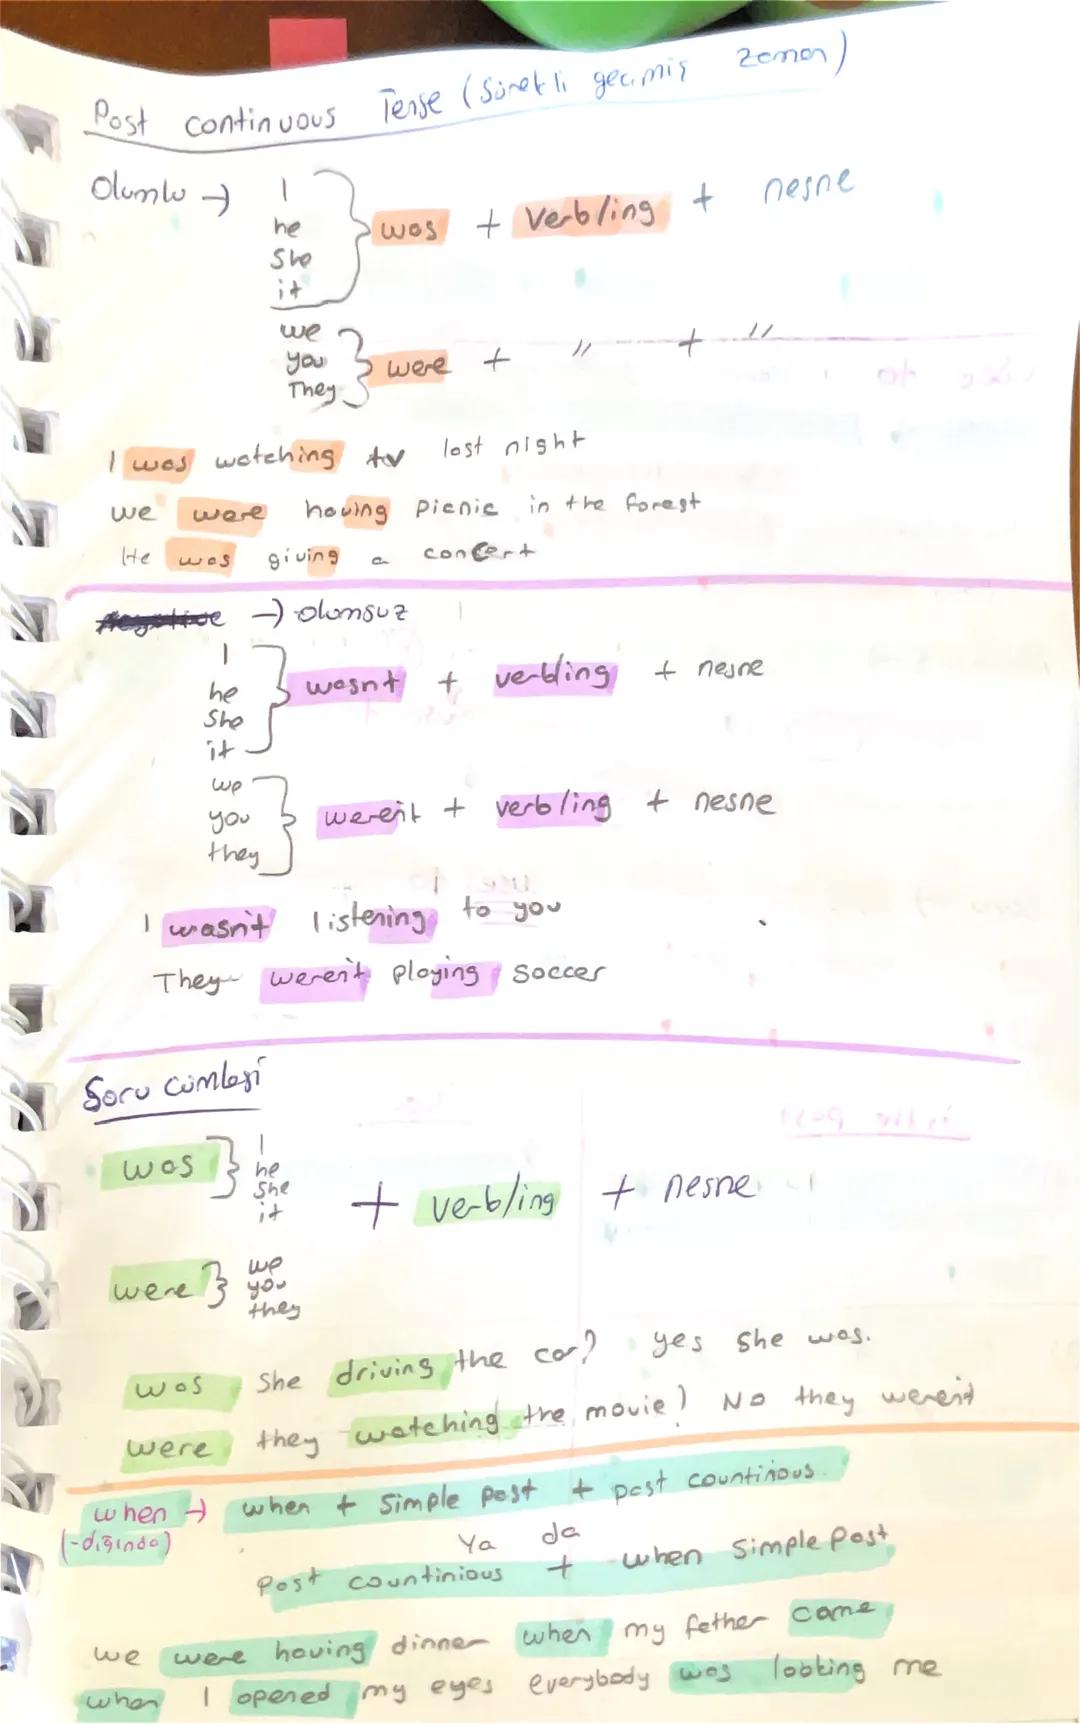 Past continuous Tense (Sürekli geçmiş zaman)
Olumlu → I
he
she
it
was + Verb/ing + nesne
we
you
They
were + " + "
I was watching tv last night
we were having picnic in the forest
He was giving a concert
→ olumsuz
I
he
she
it
wasnt + verb/ing + nesne
we
you
they
weren't + verb/ing + nesne
I wasn't listening to you
They weren't playing soccer
Soru cümlesi
was I
he
she
it
+ verb/ing + nesne
were we
you
they
was she driving the car? yes she was.
were they watching the movie? No they weren't
when → when + simple past + past countinous.
(-dığında)
Ya da
Past countinious + when simple past
we were having dinner when my father came
when I opened my eyes everybody was looking me